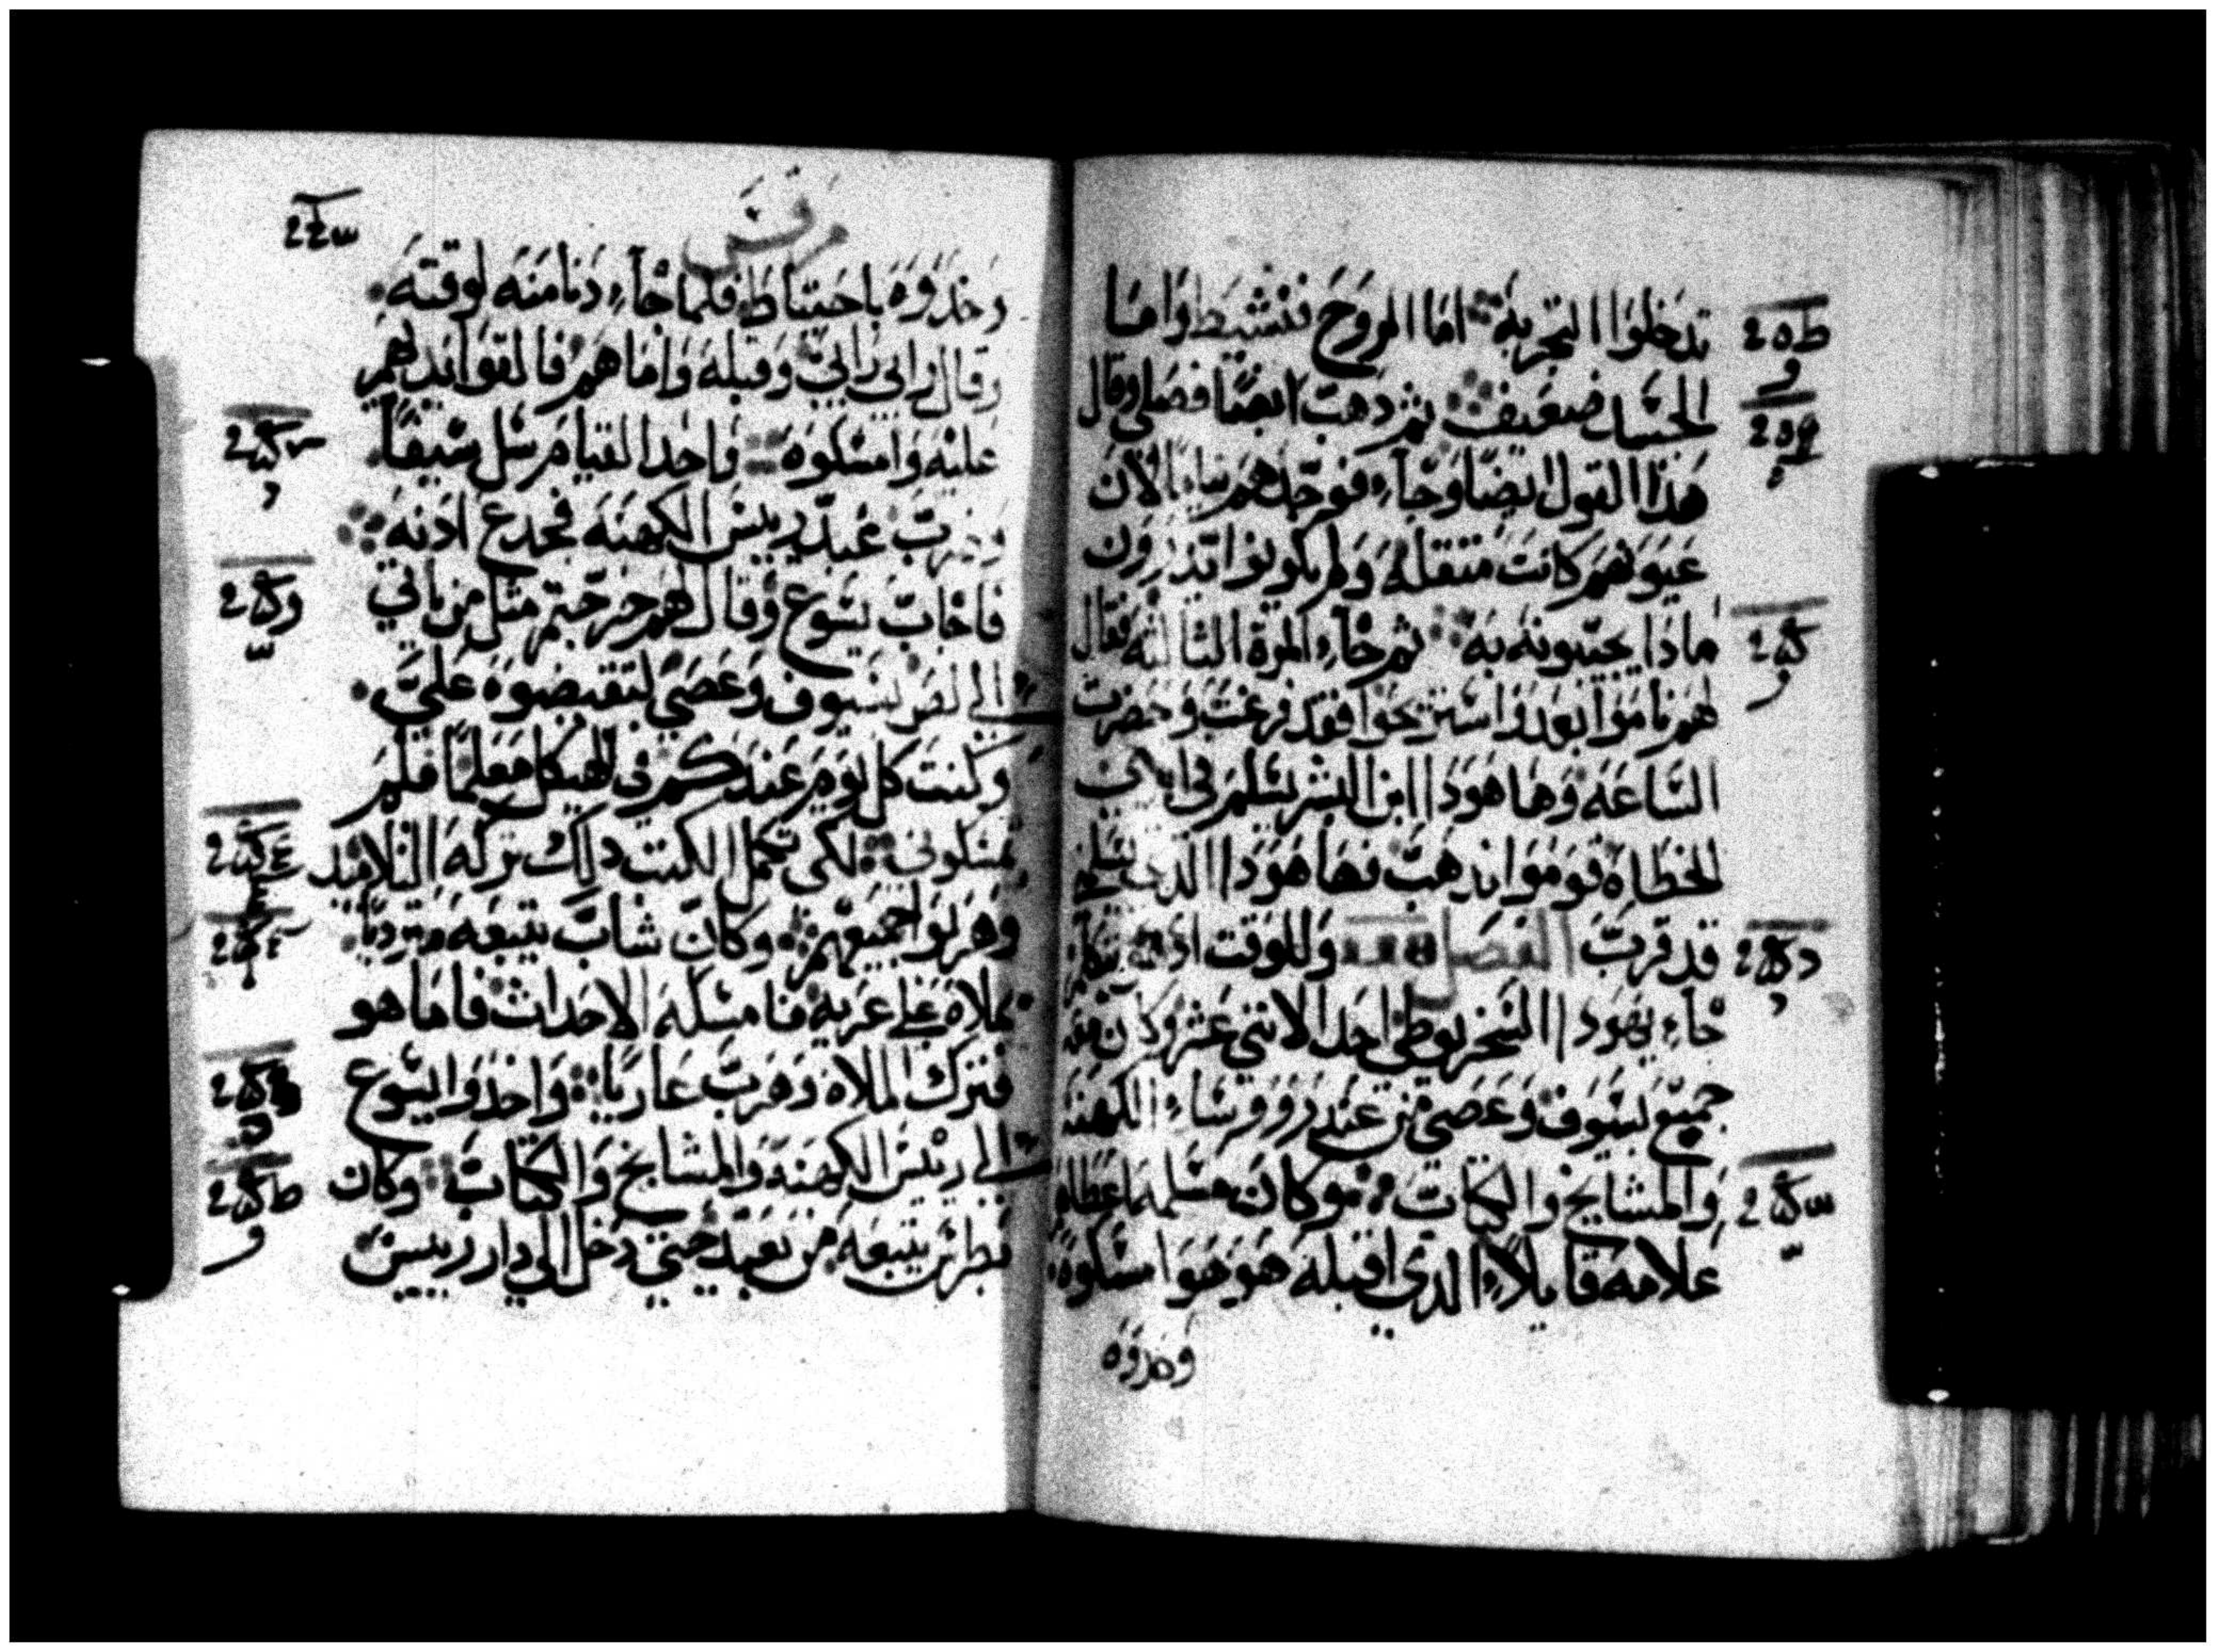 تدخلوا التجربة اما الروح فنشيط واما
الجسد ضعيف ثم دهب ايضا فصلى وقال
هذا القول ايضا وجاء فوجدهم نياما لان
عيونهم كانت متقله ولم يكونوا يدرون
مادا يجيبونه به ثم جاء المرة التالته فقال
لهم ناموا بعد واستريحوا فقد فرغت وحضرت
الساعه وها هودا ابن البشر يسلم في ايدي
الخطاه قوموا ندهب فها هودا الدي يسلم
قد قربت الفصل وللوقت اد هو يتكلم
جاء يهودا السخريوطي احد الاتني عشر وكان معه
جميع بسيوف وعصي من عند رووساء الكهنه
والمشايخ والكتاب وكان مسلمه اعطاهم
علامه قايلاء الدي اقبله هو هو امسكوه
وخدوه
مرقس
وخدوه باحتياط فلما جاء دنا منه لوقته
وقال رابي رابي وقبله واما هم فالقوا ايديهم
عليه وامسكوه واحد القيام سل سيفا
وضرب عبد رييس الكهنه فجدع ادنه
فاجاب يسوع وقال لهم خرجتم متل من ياتي
الي لص بسيوف وعصي لتقبضوه علي
وكنت كل يوم عندكم في الهيكل معلما فلم
تمسكوني لكي تكمل الكتب دلك تركه التلاميد
وهربوا جميعهم وكان شاب يتبعه متزديا
بملاه علي عريه فامسكه الاحدات فاما هو
فترك الملاه وهرب عاريا واخدوا يسوع
الي رييس الكهنه والمشايخ والكتاب وكان
بطرس يتبعه من بعيد حتي دخل الي دار رييس